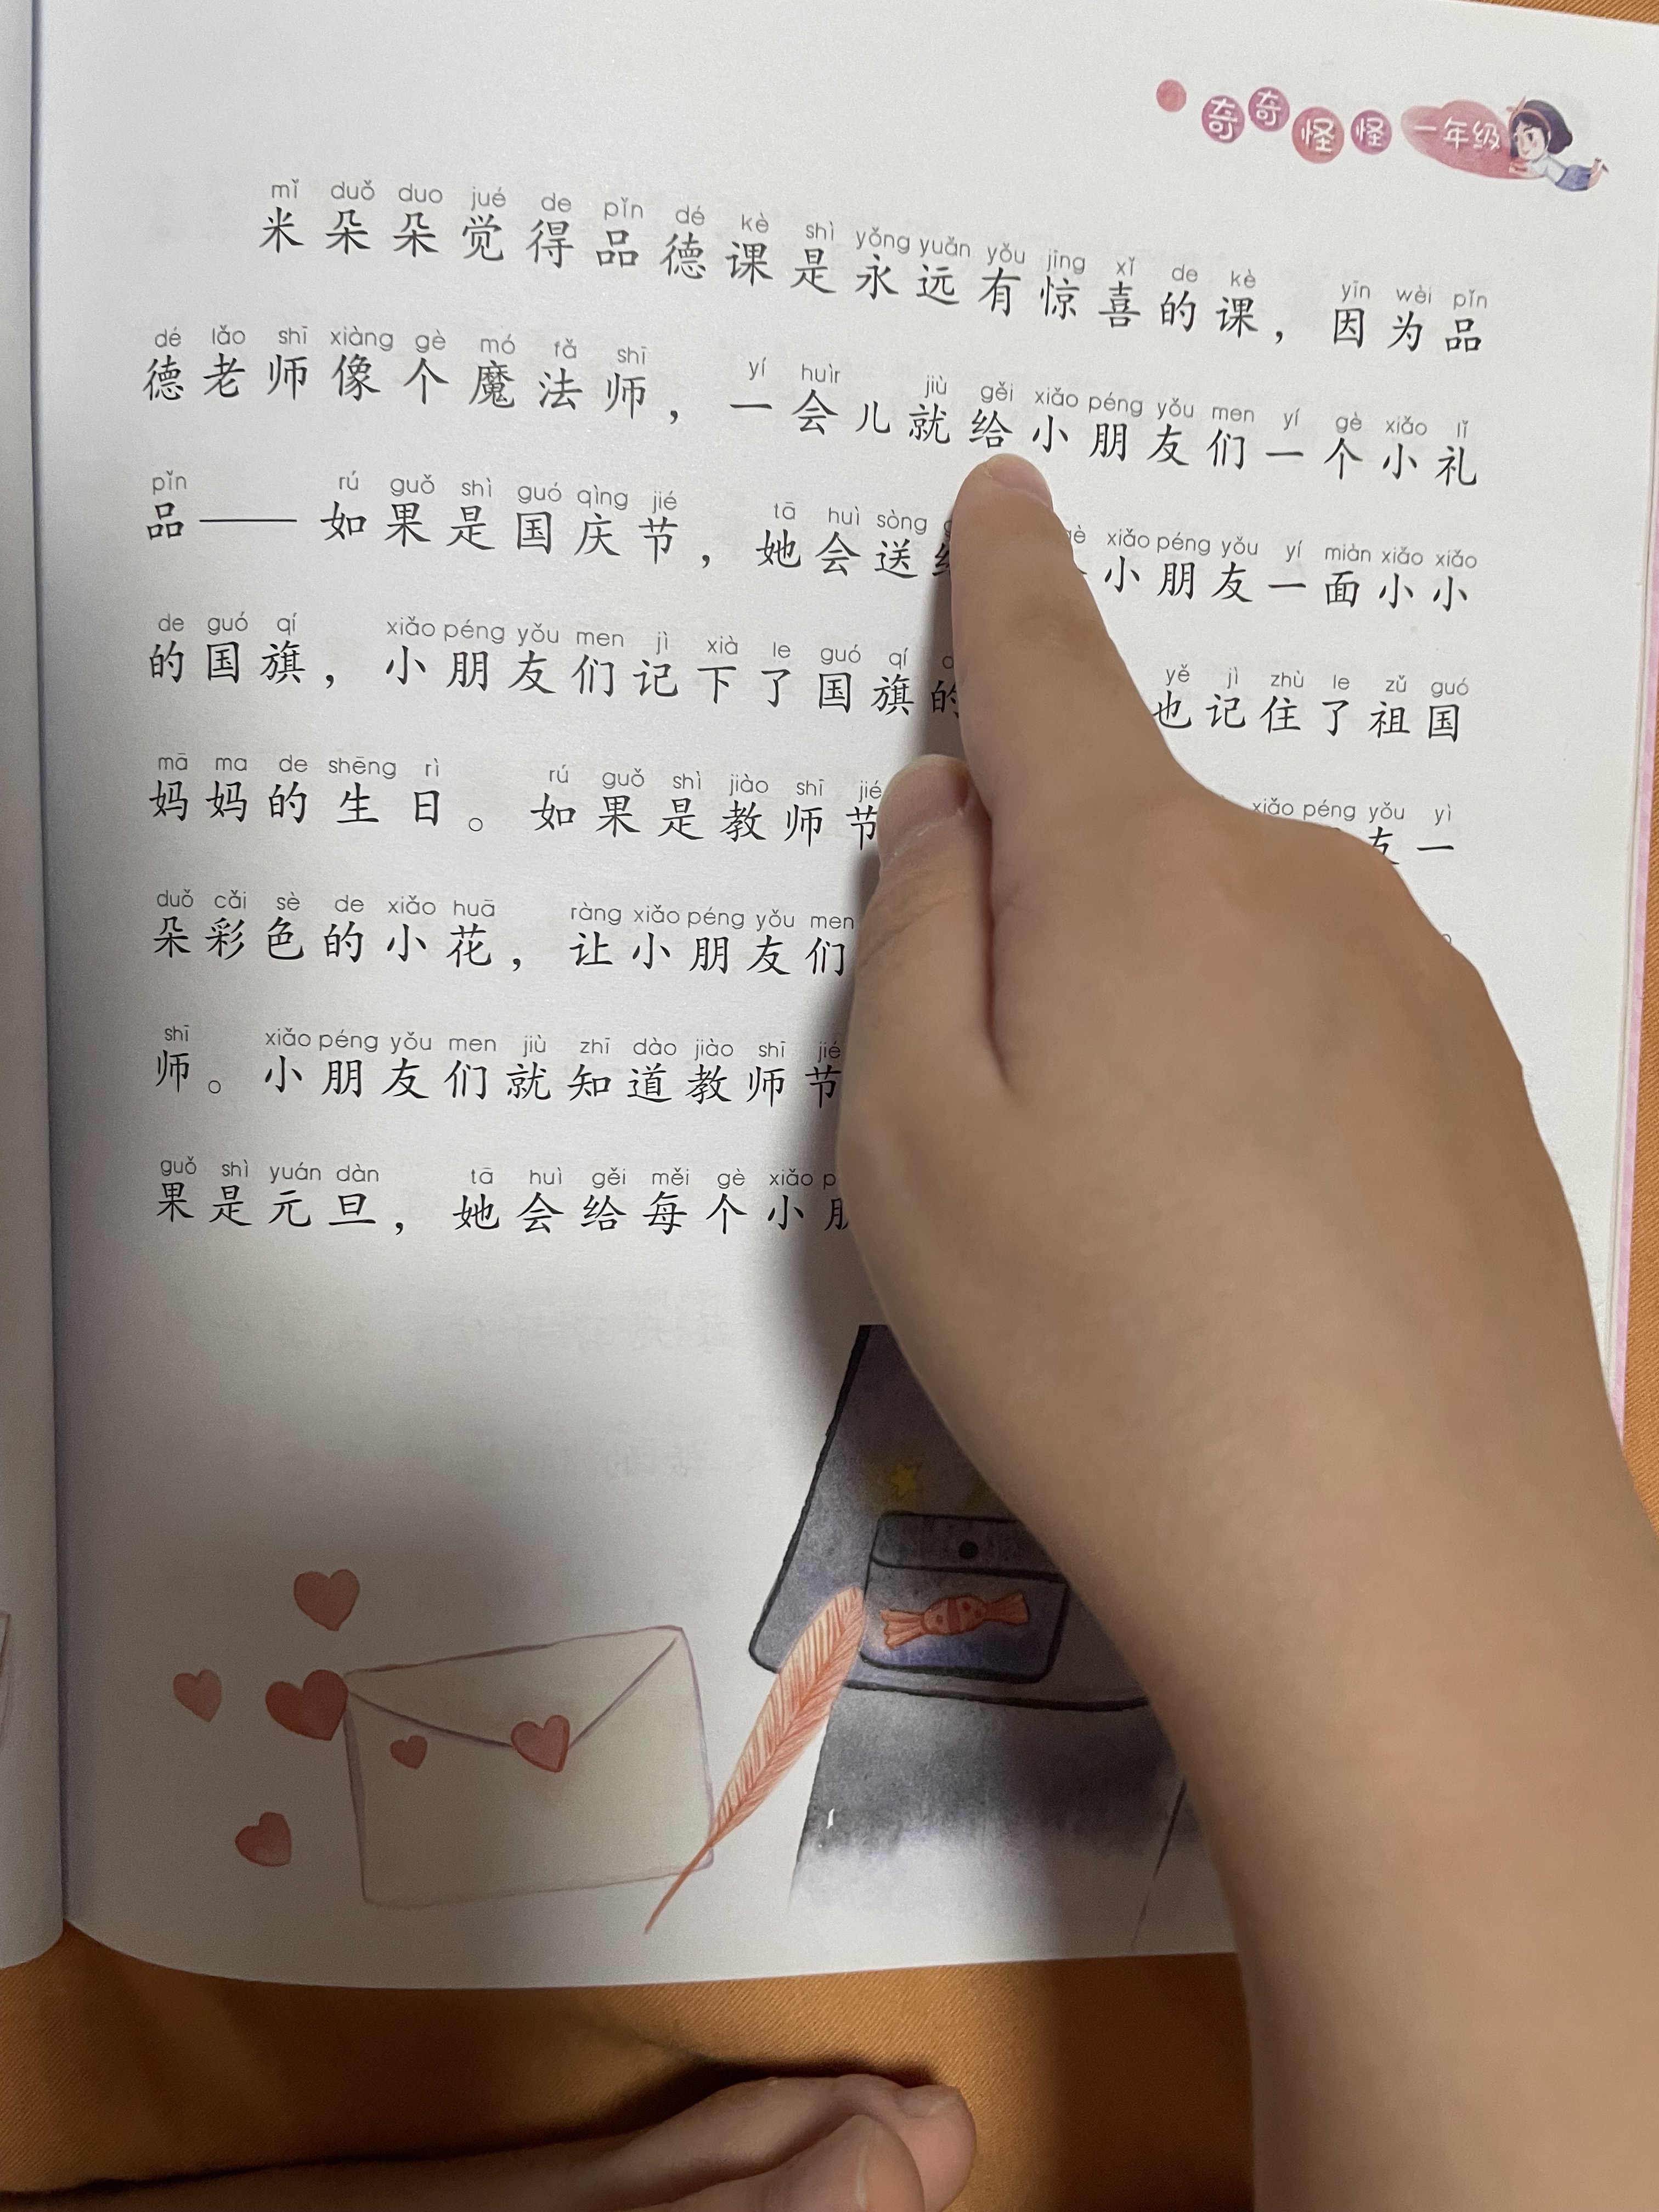 奇奇怪怪一年级
mǐ duǒ duo jué de pǐn dé kè shì yǒng yuǎn yǒu jīng xǐ de kè yīn wèi pǐn
米朵朵觉得品德课是永远有惊喜的课，因为品
dé lǎo shī xiàng gè mó fǎ shī yí huìr jiù gěi xiǎo péng yǒu men yí gè xiǎo lǐ
德老师像个魔法师，一会儿就给小朋友们一个小礼
pǐn rú guǒ shì guó qìng jié tā huì sòng xiǎo péng yǒu yí miàn xiǎo xiǎo
品——如果是国庆节，她会送 小朋友一面小小
de guó qí xiǎo péng yǒu men jì xià le guó qí yě jì zhù le zǔ guó
的国旗，小朋友们记下了国旗的 也记住了祖国
mā ma de shēng rì rú guǒ shì jiào shī jié xiǎo péng yǒu yì
妈妈的生日。如果是教师节 友一
duǒ cǎi sè de xiǎo huā ràng xiǎo péng yǒu men
朵彩色的小花，让小朋友们
shī xiǎo péng yǒu men jiù zhī dào jiào shī jié
师。小朋友们就知道教师节
guǒ shì yuán dàn tā huì gěi měi gè xiǎo
果是元旦，她会给每个小